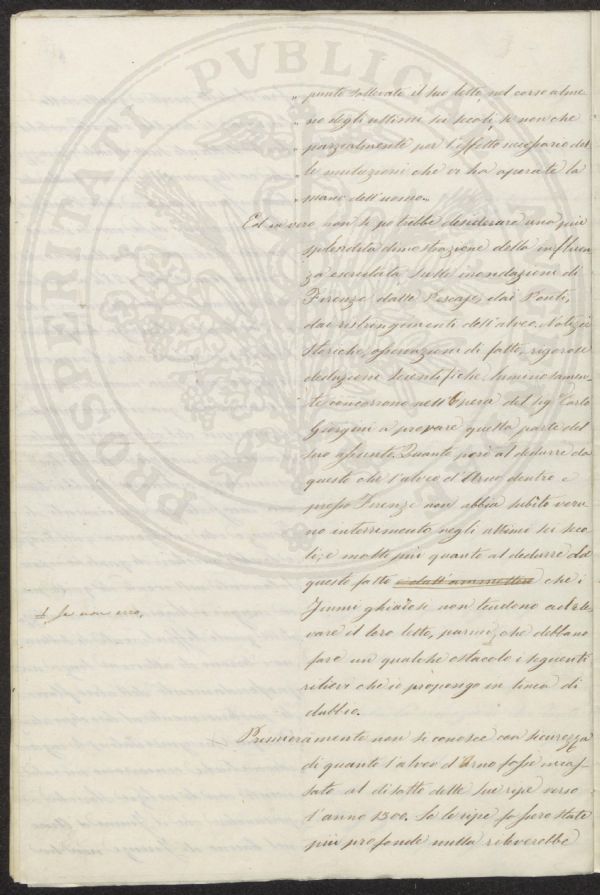 „ punto sollevato il suo letto, nel corso alme
„ no degli ultimi sei secoli, se non che
„ parzialmente per l'effetto necessario del
„ le mutazioni che vi ha operate la
„ mano dell'uomo„.
Ed in vero non si potrebbe desiderare una più
splendida dimostrazione della influen
za esercitata sulle inondazioni di
Firenze dalle Pescaje, dai Ponti,
dai restringimenti dell'alveo. Notizie
Storiche, operazioni di fatto, rigorose
deduzioni Scientifiche luminosamen
te concorrono nell'Opera del Sig. Carlo
Giorgini a provare questa parte del
suo assunto. Quanto però al dedurre da
questo che l'alveo d'Arno dentro e
presso Firenze non abbia subìto veru
no interrimento negli ultimi sei seco
li; e molto più quanto al dedurre da
questo fatto e dall'ammettere che i
fiumi ghiaiosi non tendono ad ele
vare il loro letto, parmi, che debbano
Se non erro,
fare un qualche ostacolo i seguenti
rilievi che io propongo in linea di
dubbio.
Primieramente non si conosce con sicurezza
di quanto l'alveo d'Arno fosse incas
sato al di sotto delle sue ripe verso
l'anno 1300. Se le ripe fossero state
più profonde nulla rileverebbe
PROSPERITATI PVBLICAE